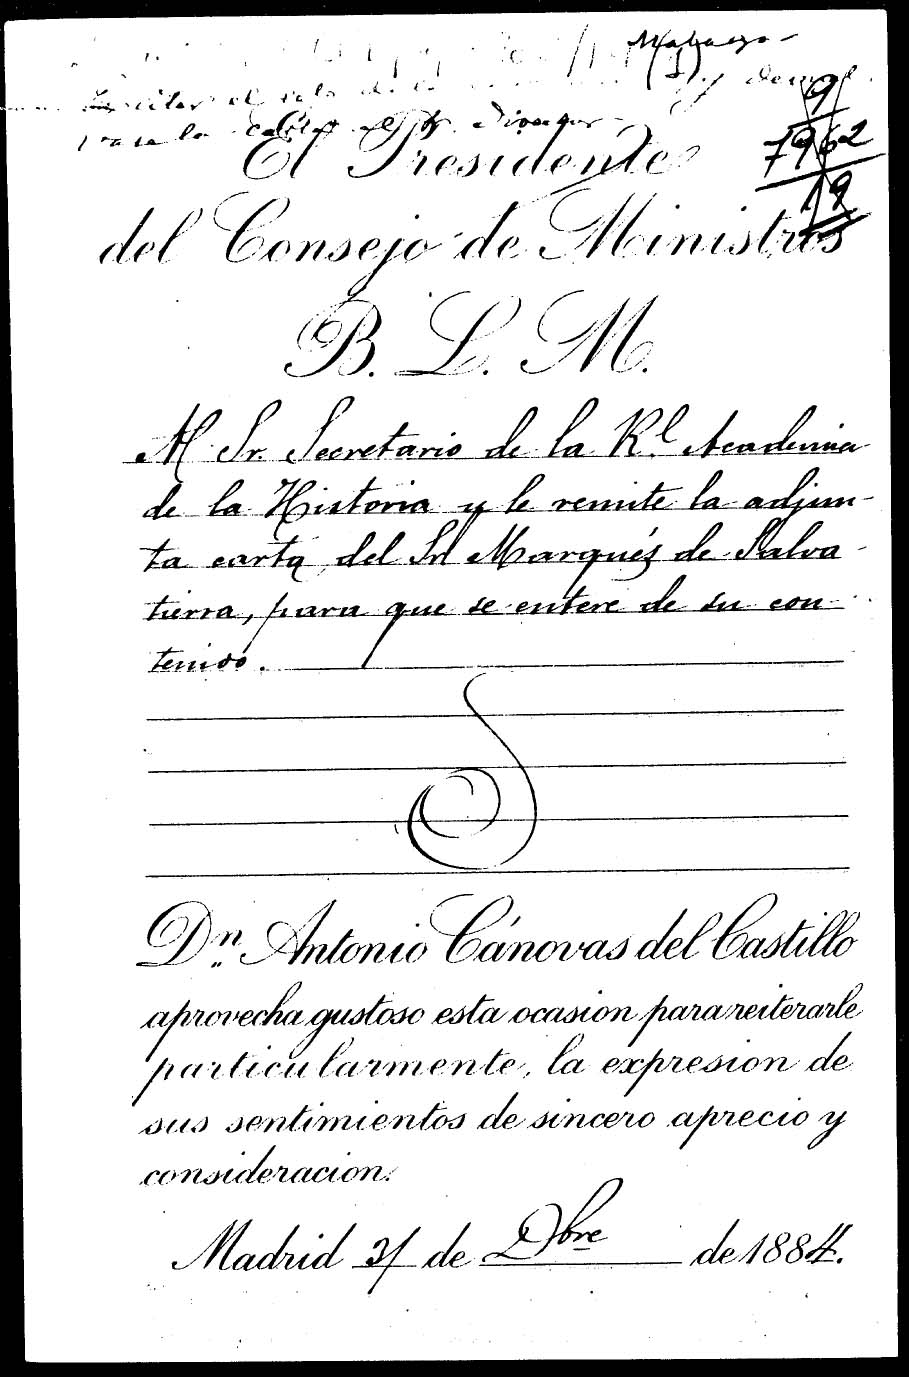 Malaga
9
7962
19
El Presidente
del Consejo de Ministros
B. L. M.
Al Sr. Secretario de la Rl. Academia
de la Historia y le remite la adjun-
ta carta del Sr. Marqués de Salva-
tierra, para que se entere de su con-
tenido.
Dn. Antonio Cánovas del Castillo
aprovecha gustoso esta ocasion para reiterarle
particularmente, la expresion de
sus sentimientos de sincero aprecio y
consideracion.
Madrid 31 de Dbre de 1884.